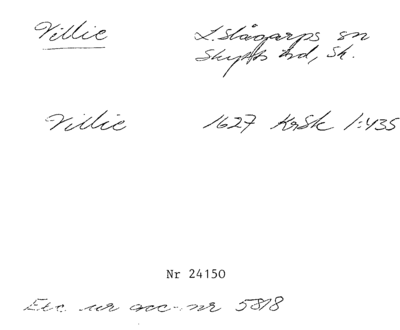 Villie L. Slågarps sn
Skytts hd, Sk.
Villie 1627 KrSk 1:435
Nr 24150
Exc. ur acc.-nr 5818